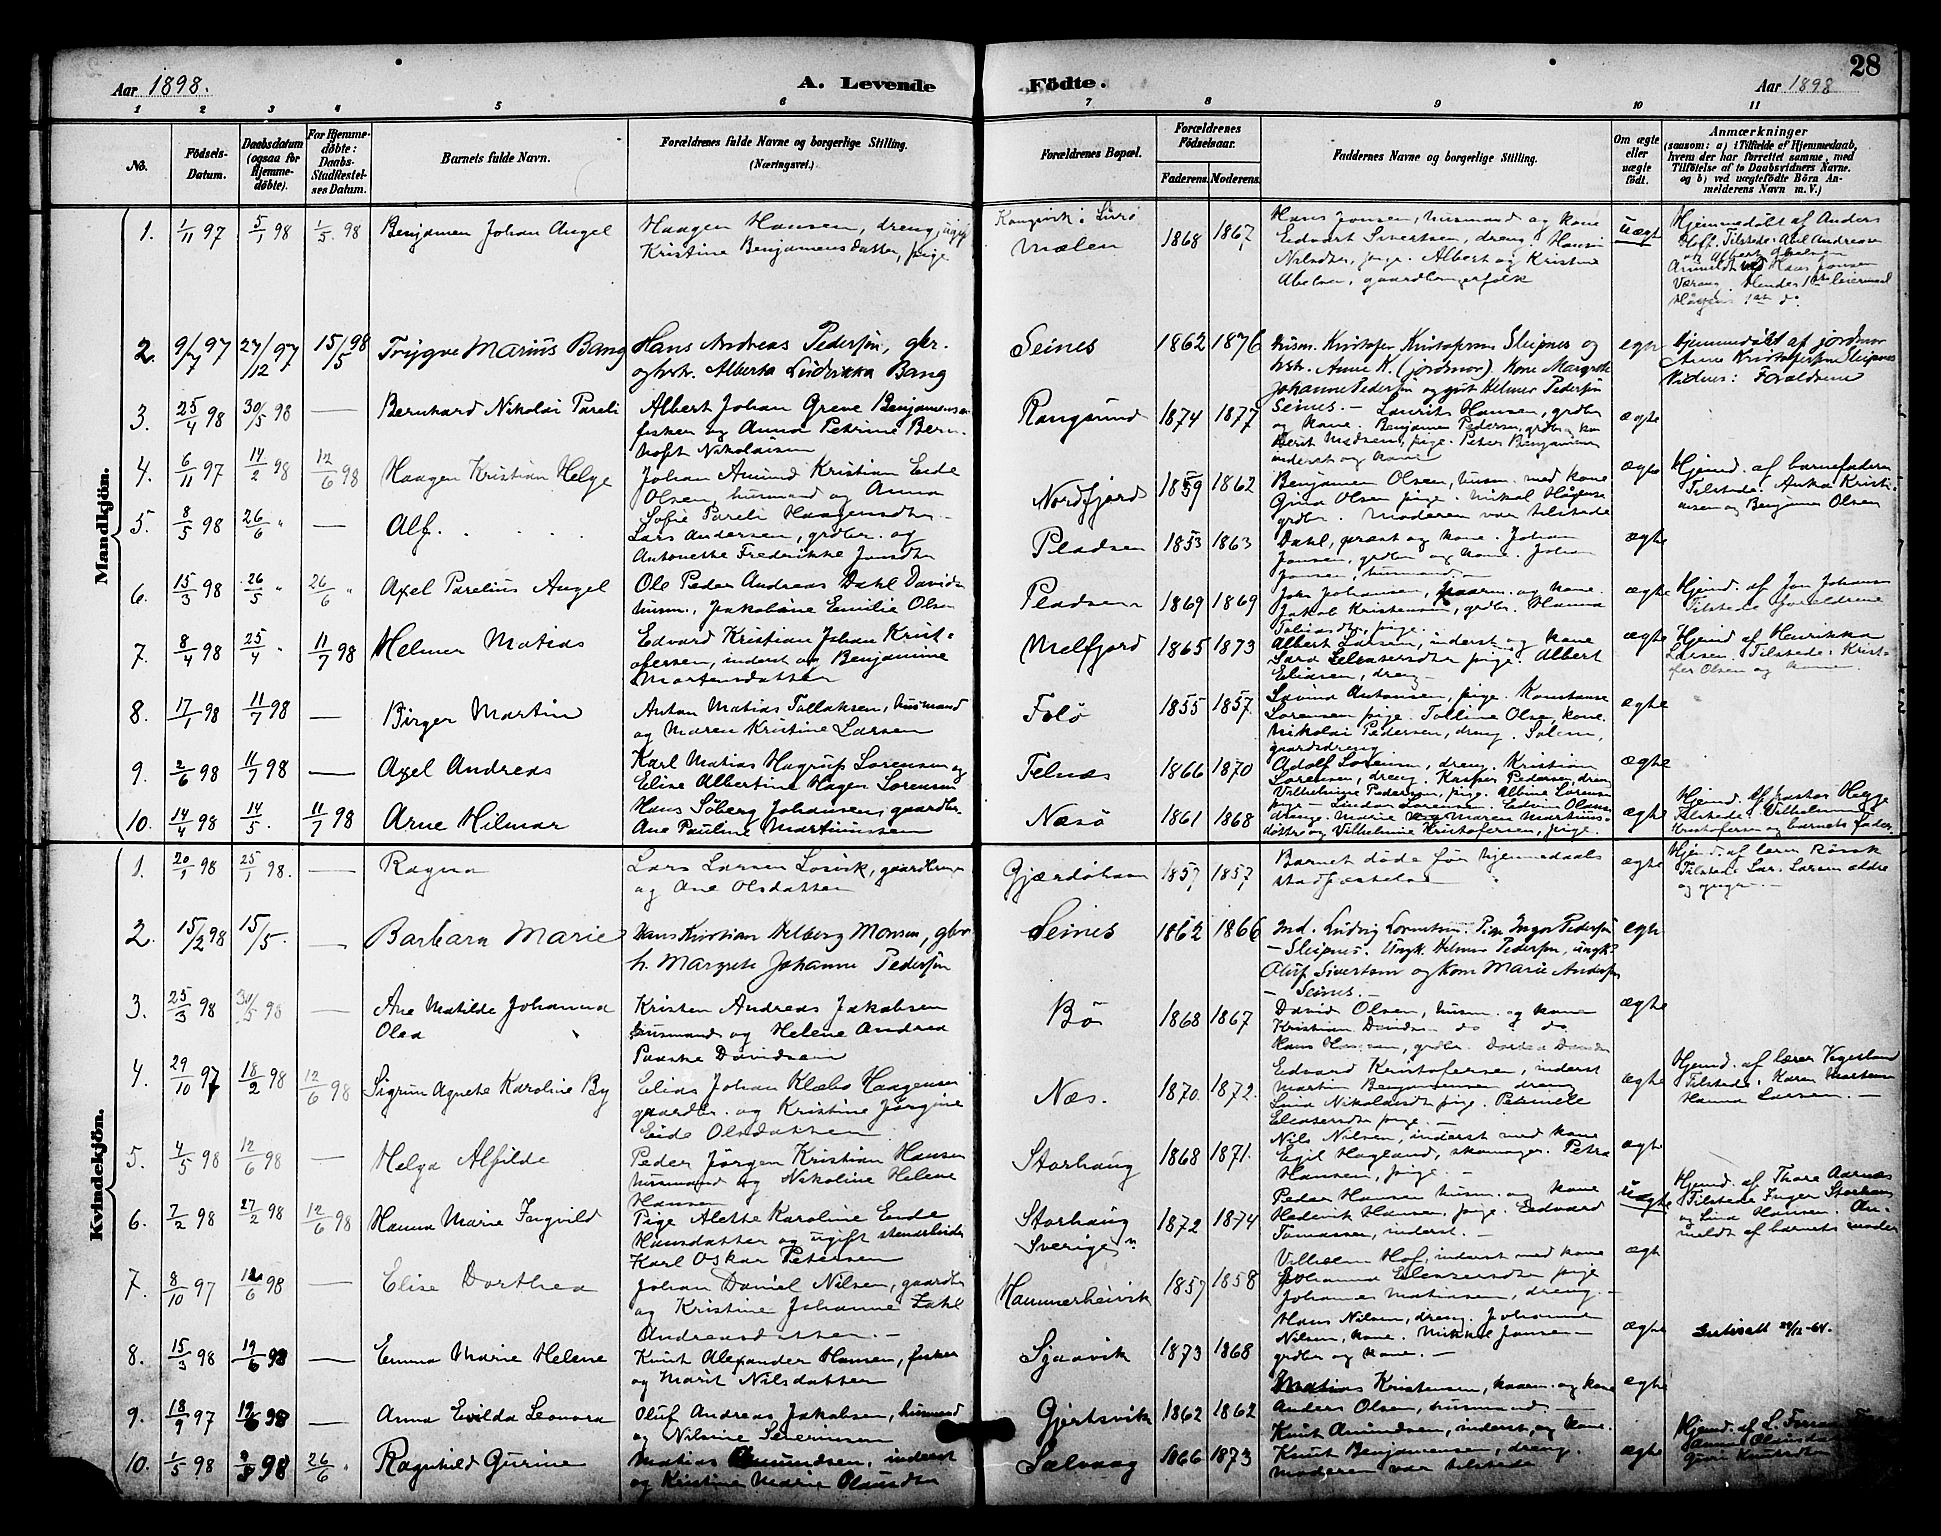 Aar 1898.
A. Levende Födte.
Aar 1898
28
1 2 3 4 5 6 7 8 9 10 11
No.
Födsels-Datum.
Daabsdatum (ogsaa for Hjemmedöbte).
For Hjemmedöbte: Daabs-Stadfæstelses Datum.
Barnets fulde Navn.
Forældrenes fulde Navne og borgerlige Stilling. (Næringsvei.)
Forældrenes Bopæl.
Forældrenes Födselsaar.
Faderens. Moderens.
Faddernes Navne og borgerlige Stilling.
Om ægte eller uægte födt.
Anmærkninger
(saasom: a) i Tilfælde af Hjemmedaab, hvem der har forrettet samme, med Tilföielse af to Daabsvidners Navne. og b) ved uægtefödte Börn Anmelderens Navn m. V.)
Mandkjön.
1. 1/11 97 5/1 98 1/5 98 Benjamen Johan Angel
Haagen Hansen, dreng, ugift
Kristine Benjamensdatter, pige
Mælen 1868 1867
Hans Jonsen, husmand og kone
Edvart Sivertsen, dreng.
Albert og Kristine
Abelsen, gaardbrugerfolk
uægte
Hjemmedøbt af Anders
2. 9/7 97 27/12 97 15/5 98 Trygve Marius Bang
Hans Andreas Pedersen, gbr.
og hstr. Alberta Ludvikka Bang
Seines 1862 1876
husm. Kristofer Kristofersen Sleipnes og
hstr. Anne K. (jordmor). Kone Margrete
Johanne Pedersen og gut Helmer Pedersen
Seines.
Hjemmedøbt af jordmor
Anne Kristofersen Sleipnes
Vidner: Forældrene
3. 25/4 98 30/5 98 — Bernhard Nikolai Pareli
Albert Johan Greve Benjamensen
fisker og Anna Petrine Bern-
hoft Nikolaisen
Rangsund 1874 1877
Laurits Hansen, grdbr
og kone. Benjamen Pedersen, grdbr.
Berit Madsen, pige. Peter Benjaminsen
inderst og kone
ægte
4. 6/11 97 14/2 98 12/6 98 Haagen Kristian Helge
Johan Amund Kristian Eide
Olsen, husmand og Anna
Sofie Pareli Haagensdtr
Nordfjord 1859 1862
Benjamen Olsen, husm. med kone
Gina Olsen pige. Nikal Hågense
grdbr. Moderen var tilstede
ægte
Hjemd. af barnefaderen
Tilstede: Anka Kristi-
ansen og Benjamen Olsen
5. 8/5 98 26/6 " — Alf.
Lars Andersen, grdbr. og
Antonette Frederikke Jonsdtr
Pladsen 1853 1863
Dahl, præst og kone. Johan
Jonsen, grdbr og kone. Johan
Jonsen, husmand
ægte
6. 15/3 98 26/5 " 26/6 " Axel Parelius Angel
Ole Peder Andreas Dahl Davids.
husm., Jakobine Emilie Olsen
Pladsen 1869 1869
Jon Johansen, kaarm. og kone.
Jakob Kristensen, grdbr. Hanna
Tobiasdtr, pige.
ægte
Hjemd. af Jon Johansen
Tilstede forældrene
7. 8/4 98 25/4 " 11/7 98 Helmer Matias
Edvard Kristian Johan Krist-
ofersen, inderst og Benjamine
Mortensdatter
Melfjord 1865 1873
Albert Larsen, inderst og kone
Sara Eleasersdtr pige. Albert
Eliasen, dreng
ægte
Hjemd. af Henrikka
Larsen. Tilstede: Krist-
ofer Olsen og kone.
8. 17/1 98 11/7 98 — Birger Martin
Anton Matias Tollaksen, husmand
og Maren Kristine Larsen
Folø 1855 1857.
Lovind Antonsen, pige. Konstanse
Lorensen pige. Tolline Olsen, kone.
Nikolai Pedersen, dreng. Solem,
gaardsdreng
ægte
9. 2/6 98 11/7 98 — Axel Andreas
Karl Matias Hagrup Lorensen og
Elise Albertine Hagen Lorensen
Telnæs 1866 1870
Adolf Lorensen, dreng. Kristian
Lorensen, dreng. Kasper Pedersen, dreng
Vilhelmine Pedersen, pige. Albine Lorensen
ægte
10. 14/4 98 14/5. 11/7 98 Arne Hilmar
Hans Søberg Johansen, gaardbr
Ane Pauline Martinussen
Næsø 1861 1868
pige — Lindor Lorensen. Edvin Olaus
drenge. Marie og Maren Martinus-
døttre og Vilhelmine Kristofersen, pige.
ægte
Hjemd. af pastor Hegge
Tilstede: Vilhelmine
Kristofersen og barnets fader.
Kvindekjön.
1. 20/1 98 25/1 98. — Ragna
Lars Larsen Losvik, gaardbruger
og Ane Olsdatter
Gjærdøhavn 1857 1857
Barnet døde før hjemmedaabs
stadfæstelse
ægte
Hjemd. af lærer Røsok
Tilstede Lars Larsen ældre
og yngre.
2. 15/2 98 15/5. — Barbara Marie
Hans Kristian Helberg Monsen, gbr
h. Margrete Johanne Pedersen
Seines 1862 1866
Ind. Ludvig Lorentsen. Pige Inger Pedersen
— Sleipnes. Ungk. Helmer Pedersen, ungk.
Oluf Sivertsen og kone Marie Andersen
— Seines. —
3. 25/3 98 30/5 98 — Ane Matilde Johanna
Olea
Kristen Andreas Jakobsen
husmand og Helene Andrea
Paaske Davidsen
Bø 1868 1867
David Olsen, husm. og kone
Kristian Davidsen do & do
Hans Hansen, grdbr. Dortea Davids
ægte
4. 29/10 97 18/2 98 12/6 98 Sigrun Agnete Karoline By
Elias Johan Klæbo Haagensen
gaardbr. og Kristine Jørgine
Eide Olsdatter
Næs. 1870. 1872.
Edvard Kristofersen, inderst
Martin Benjamensen dreng
Lina Nikolaisdtr pige. Petrnelle
Eleasersdtr pige. —
ægte
Hjemd. af lærer Vegesland
Tilstede: Karen Martensen
Hanna Larsen. —
5. 4/5 98 12/6 98 — Helga Alfilde
Peder Jørgen Kristian Hansen
husmand og Nikoline Helene
Hansen
Storhaug 1868 1871.
Nils Nilsen, inderst med kone
Egil Hagland, skomager. Petra
Hansen, pige. —
ægte
6. 7/2 98 27/2 98 12/6 98 Hanna Marie Ingvild
Pige Alette Karoline Eide
Hansdatter og ugift stenarbeider
Karl Oskar Petersen
Storhaug
Sverige 1872 1874
Peder Hansen husm. og kone
Hedevik Hansen, pige. Edvard
Tomassen, inderst. —
uægte
Hjemd. af Thore Aarnæs
Tilstede Inger Storhaug
og Lina Hansen. An-
meldt af barnets moder
7. 8/10 97 12/6 98 — Elise Dorthea
Johan Daniel Nilsen, gaardbr
og Kristine Johanne Zahl
Andreasdatter. —
Hammerheivik 1857 1858
Vilhelm Hof, inderst med kone
Johanna Eleasersdtr pige
Johannes Matiassen, dreng. —
ægte
8. 15/3 98 19/6 98 — Emma Marie Helene
Knut Alexander Hansen, fisker
og Marit Nilsdatter
Sjaavik 1873 1868
Hans Nilsen, dreng. Johanne
Nilsen, kone. Mikkel Jonsen
grdbr og kone. —
ægte
9. 18/9 97 19/6 98 — Anna Evilda Leonora
Oluf Andreas Jakobsen, husmand
og Nilsine Severinsen
Gjertsvik 1862 1862
Matias Kristensen, kaarm. og kone
Anders Olsen, husmand. —
ægte
10. 1/5 98 98 26/6 " Ragnhild Gurine
Matias Amundsen, inderst
og Kristine Marie Olausdtr
Sælvaag 1866 1873
Knut Amundsen, inderst og kone.
Knut Benjamensen, dreng.
Moderen var tilstede
ægte